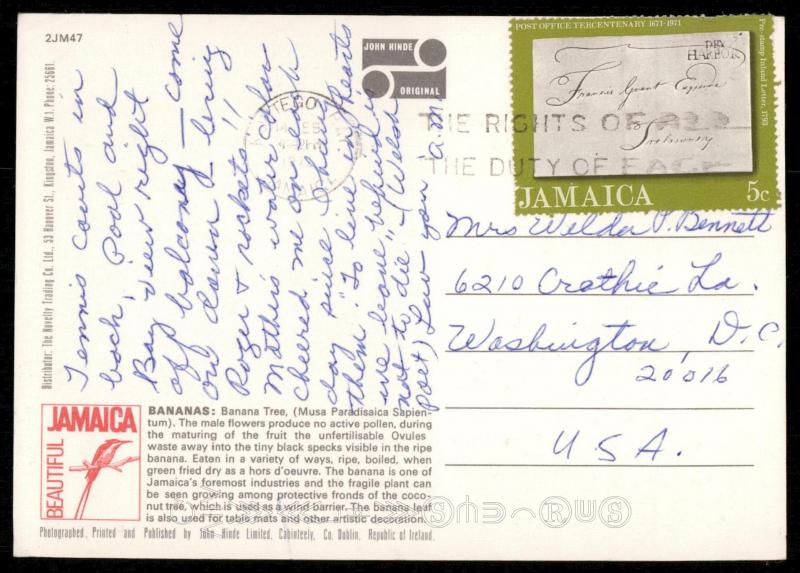 2JM47
JOHN HINDE
ORIGINAL
POST OFFICE TERCENTENARY 1671-1971
Pre-stamp Inland Letter, 1793
DRY
HARBOR
Francis Grant Esquire
JAMAICA
5c
THE RIGHTS OF
THE DUTY OF EACH
Mrs Welda P. Bennett
6210 Crathie La.
Washington, D.C.
20016
U.S.A.
Tennis courts in
back, Pool and
Bay view right
off balcony - come
on down bring
Roger & rockets. Our
Mathis water color
cheered me on each
day since I have
them "To live in hearts
we leave behind is
not to die" (Welsh
Poet) Luv you a.m.
Distributor: The Novelty Trading Co. Ltd., 53 Hanover St., Kingston, Jamaica W.I. Phone: 25661.
BEAUTIFUL JAMAICA
BANANAS: Banana Tree, (Musa Paradisaica Sapien-
tum). The male flowers produce no active pollen, during
the maturing of the fruit the unfertilisable Ovules
waste away into the tiny black specks visible in the ripe
banana. Eaten in a variety of ways, ripe, boiled, when
green fried dry as a hors d'oeuvre. The banana is one of
Jamaica's foremost industries and the fragile plant can
be seen growing among protective fronds of the coco-
nut tree, which is used as a wind barrier. The banana leaf
is also used for table mats and other artistic decoration.
Photographed, Printed and Published by John Hinde Limited, Cabinteely, Co. Dublin, Republic of Ireland.